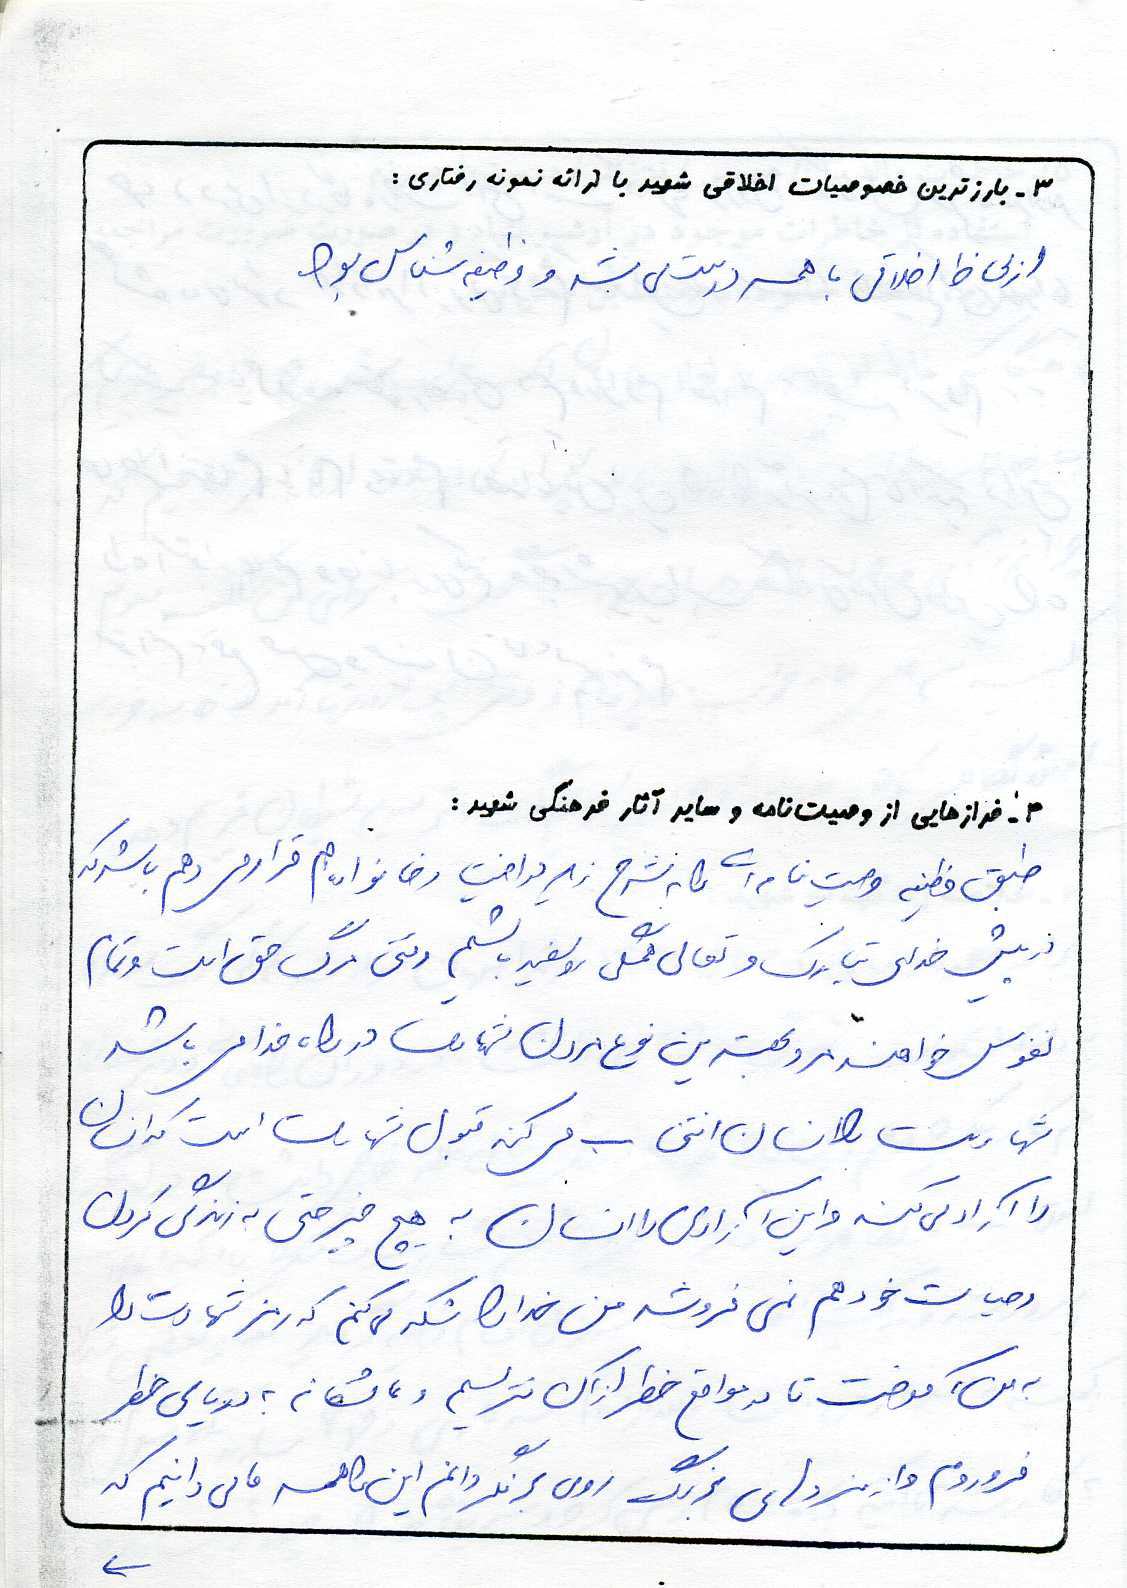 ۳ـ بارزترین خصوصیات اخلاقی شهید با ارائه نمونه رفتاری :
از لحاظ اخلاقی با همه درست می شد و وظیفه شناس بود
۴ـ فرازهایی از وصیت‌نامه و سایر آثار فرهنگی شهید :
طبق وظیفه وصیت نامه ای را به شرح زیر در اختیار خانواده ام قرار می دهم باشد که
در پیش خدای تبارک و تعالی همگی روسفید باشیم وقتی مرگ حق است و تمام
نفوس خواهند مرد بهترین نوع مردن شهادت در راه خدا می باشد
شهادت را انسان انتخاب می کند قبول شهادت است که انسان
را آزاد می کند و این آزادی را انسان به هیچ چیز حتی به زندگی کردن
و حیات خود هم نمی فروشد من خدا را شکر می کنم که رمز شهادت را
به من آموخت تا در مواقع خطر از آن نترسیم و عاشقانه به دریای خطر
فرو روم و از نبردهای بزرگ روی برنگردانم این را همه ما می دانیم که
←